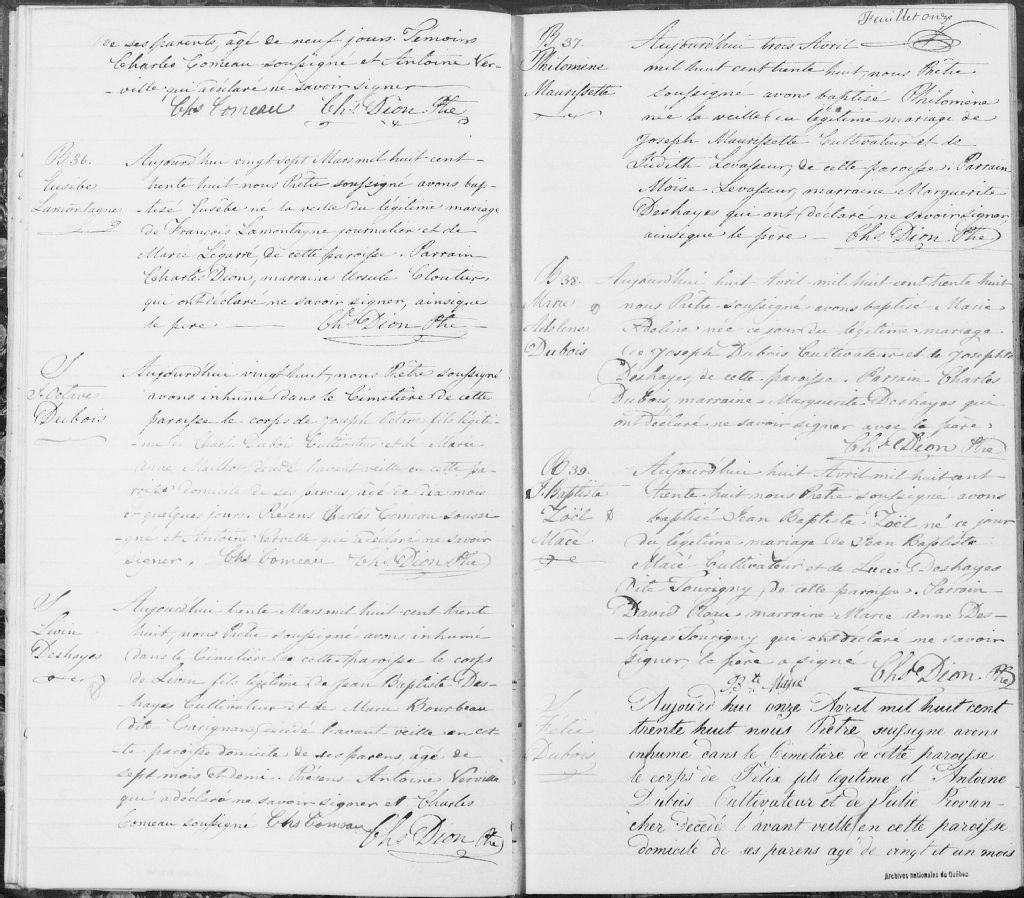 de ses parents, âgé de neuf jours. Temoins
Charles Comeau soussigné et Antoine Ver-
-ville qui a déclaré ne savoir signer
Chs Comeau Chs Dion Ptre
B 36.
Eusèbe
Lamontagne
Aujourd'hui vingt sept Mars mil huit cent-
trente huit nous Prêtre soussigné avons bap-
-tisé Eusèbe né la veille du légitime mariage
de François Lamontagne journalier et de
Marie Légaré, de cette paroisse. Parrain
Charles Dion, marraine Ursule Cloutier,
qui ont déclaré ne savoir signer, ainsi que
le père Chs Dion Ptre
S
J. Octave
Dubois
Aujourd'hui vingt huit, nous Prêtre soussigné
avons inhumé dans le Cimetière de cette
paroisse le corps de Joseph Octave fils légiti-
me de Charles Dubois Cultivateur et de Marie
Anne Mailhot décédé l'avant veille en cette pa-
roisse domicile de ses parens, âgé de dix mois
et quelques jours. Présens Charles Comeau soussi-
gné et Antoine Verville qui a déclaré ne savoir
signer. Chs Comeau Chs Dion Ptre
S
Livin
Deshayes
Aujourd'hui trente Mars mil huit cent trente
huit, nous Prêtre soussigné avons inhumé
dans le Cimetière de cette paroisse le corps
de Livin fils légitime de Jean Baptiste Des-
-hayes Cultivateur et de Marie Bourbeau
dite Carignan, décédé l'avant veille en cet-
-te paroisse domicile de ses parens, âgé de
sept mois et demi. Présens Antoine Verville
qui a déclaré ne savoir signer et Charles
Comeau soussigné Chs Comeau
Chs Dion Ptre
Feuillet onze
B 37.
Philomène
Maurissette
Aujourd'hui trois Avril
mil huit cent trente huit, nous Prêtre
soussigné avons baptisé Philomène
née la veille du légitime mariage de
Joseph Maurissette Cultivateur et de
Judith Levasseur, de cette paroisse. Parrain
Moïse Levasseur, marraine Marguerite
Deshayes qui ont déclaré ne savoir signer,
ainsi que le père - Chs Dion Ptre
B 38.
Marie
Adeline
Dubois
Aujourd'hui huit Avril mil huit cent trente huit
nous Prêtre soussigné avons baptisé Marie
Adeline née ce jour du légitime mariage
de Joseph Dubois Cultivateur et de Josephte
Deshayes, de cette paroisse. Parrain Charles
Dubois marraine Marguerite Deshayes qui
ont déclaré ne savoir signer avec le père
Chs Dion Ptre
B 39.
J. Baptiste
Zoël
Macé
Aujourd'hui huit Avril mil huit cent
trente huit nous Prêtre soussigné avons
baptisé Jean Baptiste Zoël né ce jour
du légitime mariage de Jean Baptiste
Macé Cultivateur et de Luce Deshayes
dite Tourigny, de cette paroisse. Parrain
David Roau marraine Marie Anne Des-
-hayes Tourigny qui ont déclaré ne savoir
signer, le père a signé Chs Dion Ptre
Bte Macé
S
Felix
Dubois
Aujourd'hui onze Avril mil huit cent
trente huit nous Prêtre soussigné avons
inhumé dans le Cimetière de cette paroisse
le corps de Félix fils légitime d'Antoine
Dubois Cultivateur et de Julie Provan-
cher décédé l'avant veille en cette paroisse
domicile de ses parens agé de vingt et un mois
Archives nationales du Québec